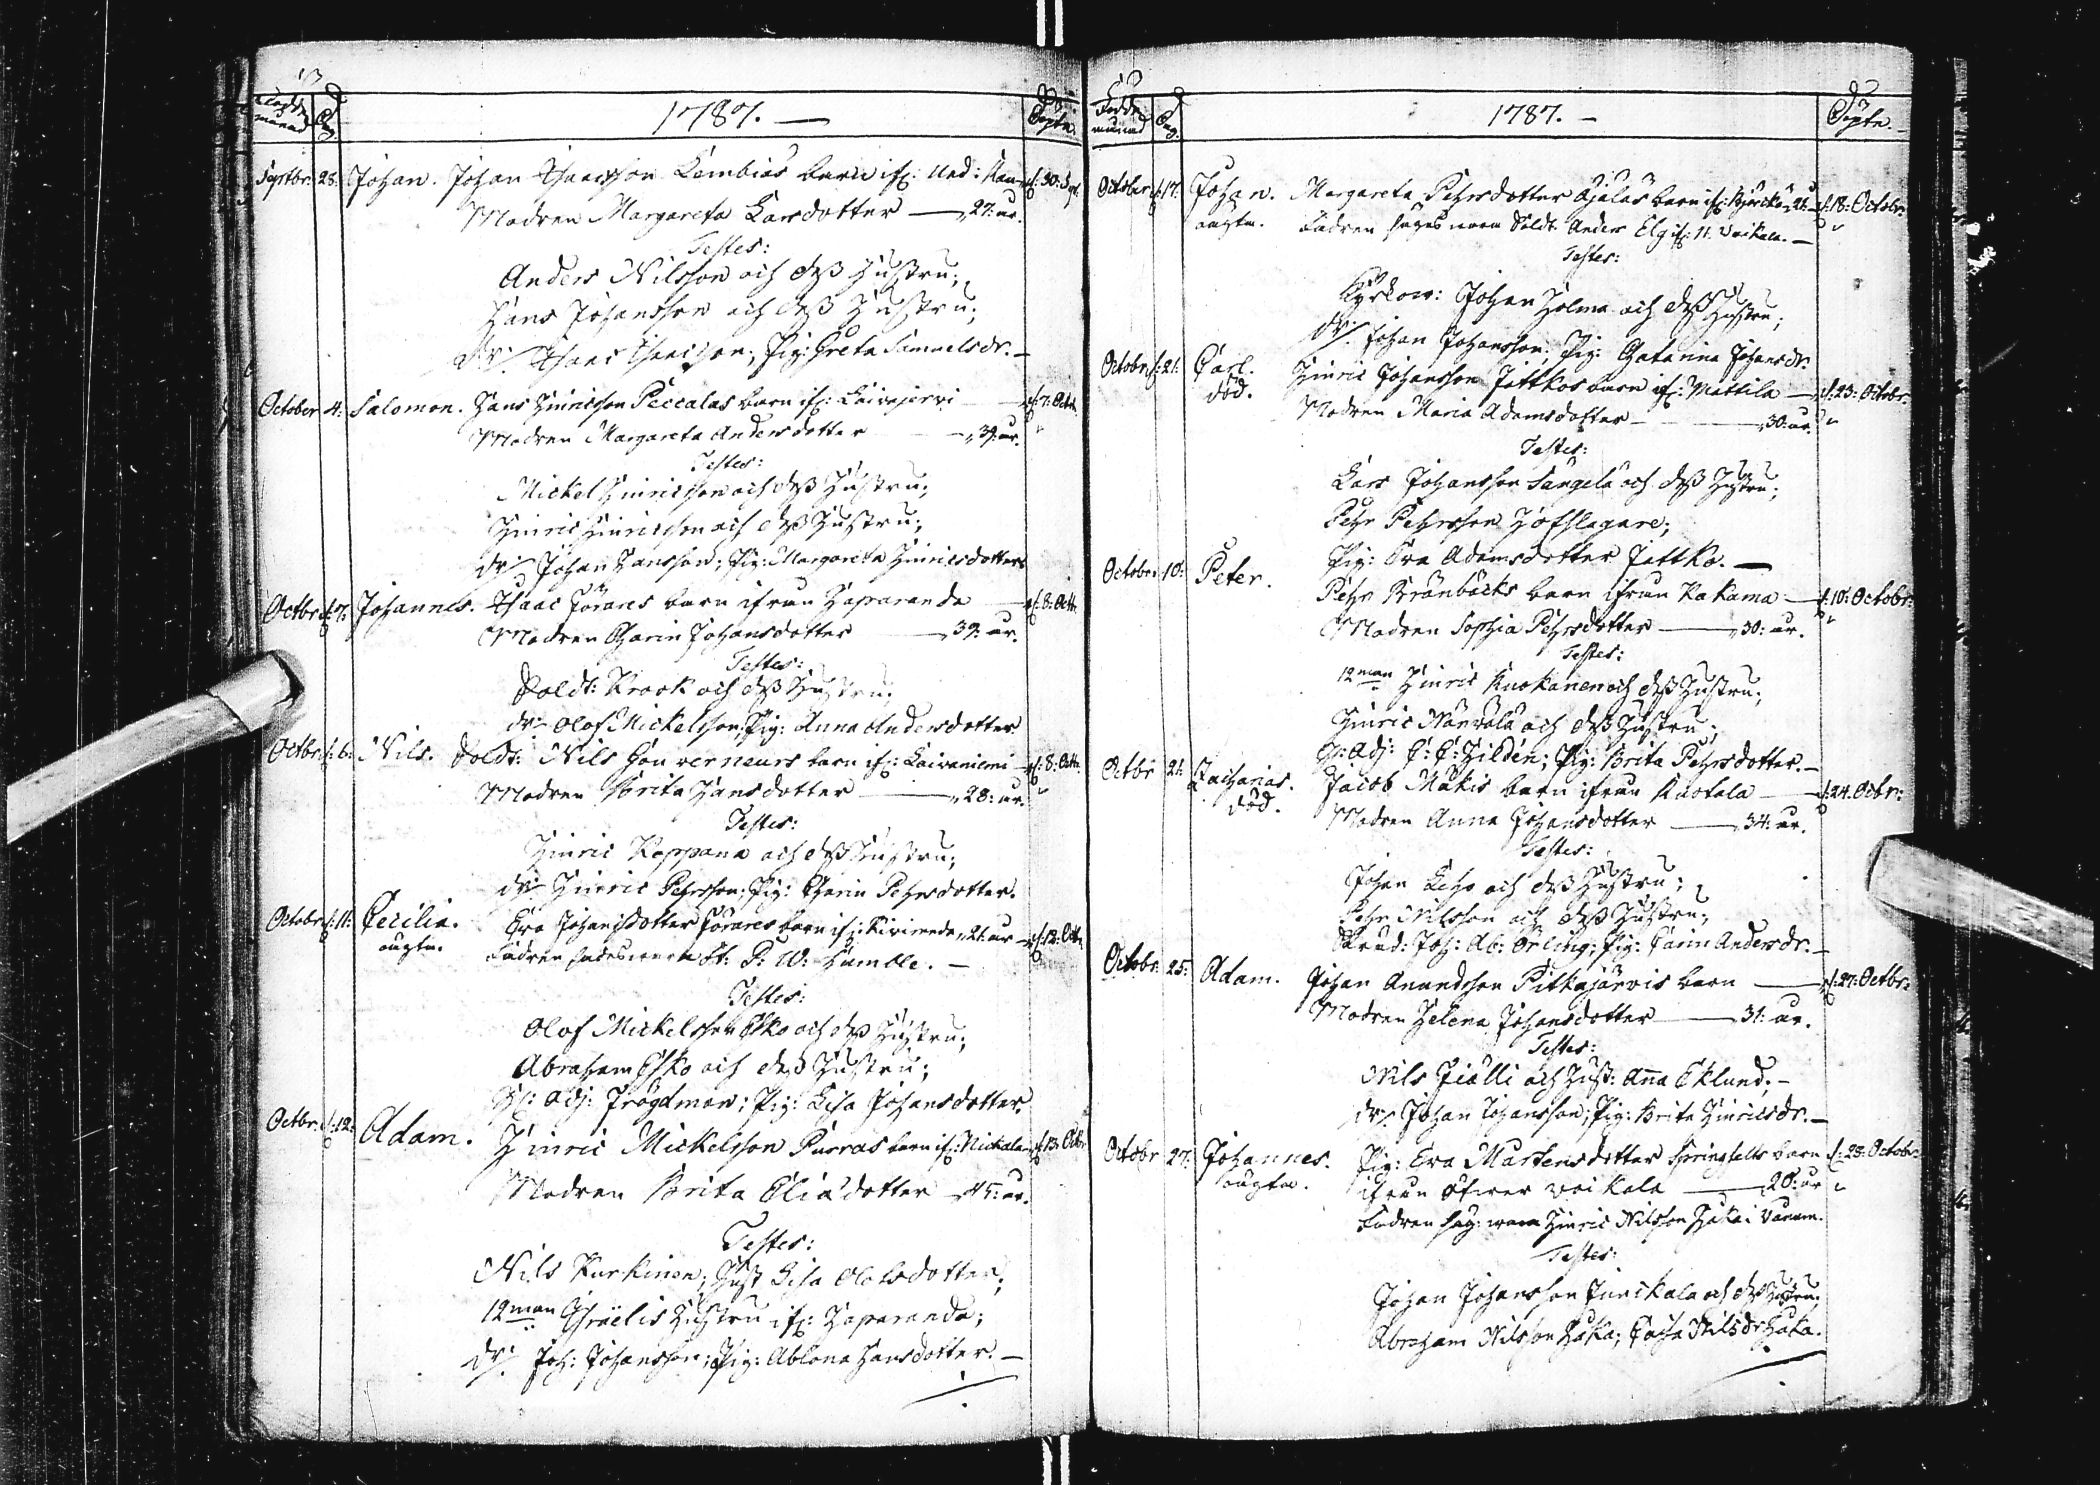 Födde månad Dag. 1787. — Döpte.
Septbr: 28. Johan. Johan Isacsson Kembias barn if: Ned: d: 30: Sept.
Modren Margareta Larsdotter — 27: år.
Testes:
Anders Nilsson och dess Hustru;
Hans Johansson och dess Hustru;
dr: Isaac Isacsson; Pig: Greta Samuelsdr. —
October 4: Salomon. Hans Hinricsson Peccalas barn if: Laivajervi — d: 7: Octb.
Modren Margareta Andersdotter — 39: år.
Testes:
Mickel Hinricsson och dess Hustru;
Hinric Hinricsson och dess Hustru;
dr: Johan Hansson; Pig: Margareta Hinricsdotter
Octbr: d: 7: Johannes. Isaac Föräres barn ifrån Haparanda — d: 8: Octb.
Modren Charin Johansdotter — 39: år.
Testes:
Soldt: Krook och dess Hustru;
dr: Olof Mickelsson; Pig: Anna Andersdotter
Octbr: d: 6: Nils. Soldt: Nils Gouverneurs barn if: Laivaniemi — d: 8: Octb.
Modren Brita Hansdotter — 28: år.
Testes:
Hinric Koppana och dess Hustru;
dr: Hinric Pehrsson; Pig: Charin Pehrsdotter.
Octobr: d: 11: Cecilia. Eva Johansdotter Föräres barn if: Kiviranda, 21: år — d: 12: Octb.
oägta. Fadren sades vara St: P: W: Humble. —
Testes:
Olof Mickelsson Esko och dess Hustru;
Abraham Esko och dess Hustru;
Adj: Frögdman; Pig: Lisa Johansdotter.
Octbr: d: 12: Adam. Hinric Mickelsson Purras barn if: Nickala — d: 13: Octbr
Modren Brita Eliädotter — 45: år.
Testes:
Nils Kurkinen; Hust Lisa Olofsdotter;
12man Israëlis Hustru if: Haparanda;
dr: Joh: Johansson; Pig: Ablona Hansdotter. —
Födde månad Dag. 1787. — Döpte.
October d: 17. Johan. Margareta Pehrsdotter Ojalas barn if: Björckön, 21: — d: 18: Octobr:
oägta. Fadren säges vara Soldt: Anders Elg if: N: Voikala. —
Testes:
Kyrkow: Johan Holma och dess Hustru;
dr: Johan Johansson; Pig: Catarina Johansdr.
Octobr: d: 21: Carl. Hinric Johansson Jattkos barn if: Mattila — d: 23: Octobr:
död. Modren Maria Adamsdotter — 30: år.
Testes:
Lars Johansson Sangela och dess Hustru;
Pehr Pehrsson Hofslagare;
Pig: Eva Adamsdotter Jattko. —
October 10: Peter. Pehr Krånbäcks barn ifrån Kakama — d: 10: Octobr:
Modren Sophia Pehrsdotter — 30: år.
Testes:
12man Hinric Kuokanen och dess Hustru;
Hinric Närvälä och dess Hustru;
Adj: E: E: Hildén; Pig: Brita Pehrsdotter. —
Octbr 21: Zacharias. Jacob Mäkis barn ifrån Ruotala — d: 24. Octbr:
död. Modren Anna Johansdotter — 34: år.
Testes:
Johan Leho och dess Hustru;
Pehr Nilsson och dess Hustru;
Stud: Joh: Ab: Örling; Pig: Carin Andersdr. —
Octobr: 25: Adam. Johan Anundsson Pitkäjärvis barn — d: 27: Octbr:
Modren Helena Johansdotter — 31: år.
Testes:
Nils Fiälli och Hust: Anna Eklund; —
dr: Johan Johansson; Pig: Brita Hinricsdr. —
Octobr 27: Johannes. Pig: Eva Martensdotter Springfelts barn d: 28: Octobr:
oägta. ifrån Öfver Voikala — 20: år
Fadren säg: vara Hinric Nilsson Haka i Vanam.
Testes:
Johan Johansson Junikala och dess Hustru;
Abraham Nilsson Haka; Caisa Nilsdr: Haka.